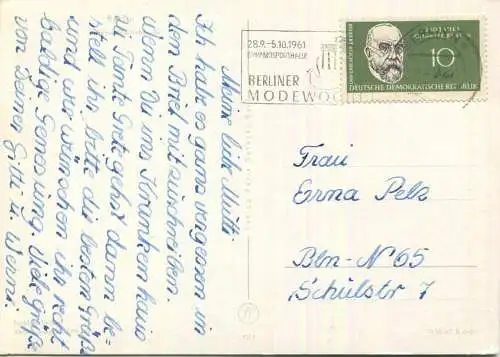 Meine liebe Mutti.
Ich habe es ganz vergessen in
den Brief mit zuschreiben.
Wenn Du ins Krankenhaus
zu Tante Grete gehst dann be-
stell ihr bitte die besten Grüße
und wir wünschen ihr recht
baldige Genesung. Viele Grüße
von Deiner Gitti u. Werni.
28.9.–5.10.1961
BERLINER
MODEWOCHE
10
DEUTSCHE DEMOKRATISCHE REPUBLIK
Frau
Erna Pelz
Bln–N 65
Schulstr 7